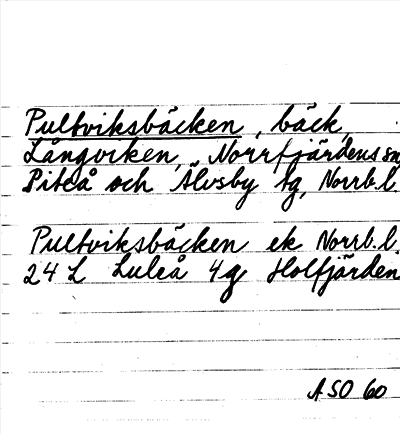 Pultviksbäcken, bäck,
Långviken, Norrfjärdens sn,
Piteå och Älvsby tg, Norrb.l.
Pultviksbäcken ek Norrb.l.
24 L Luleå 4g Holfjärden
ASO 60